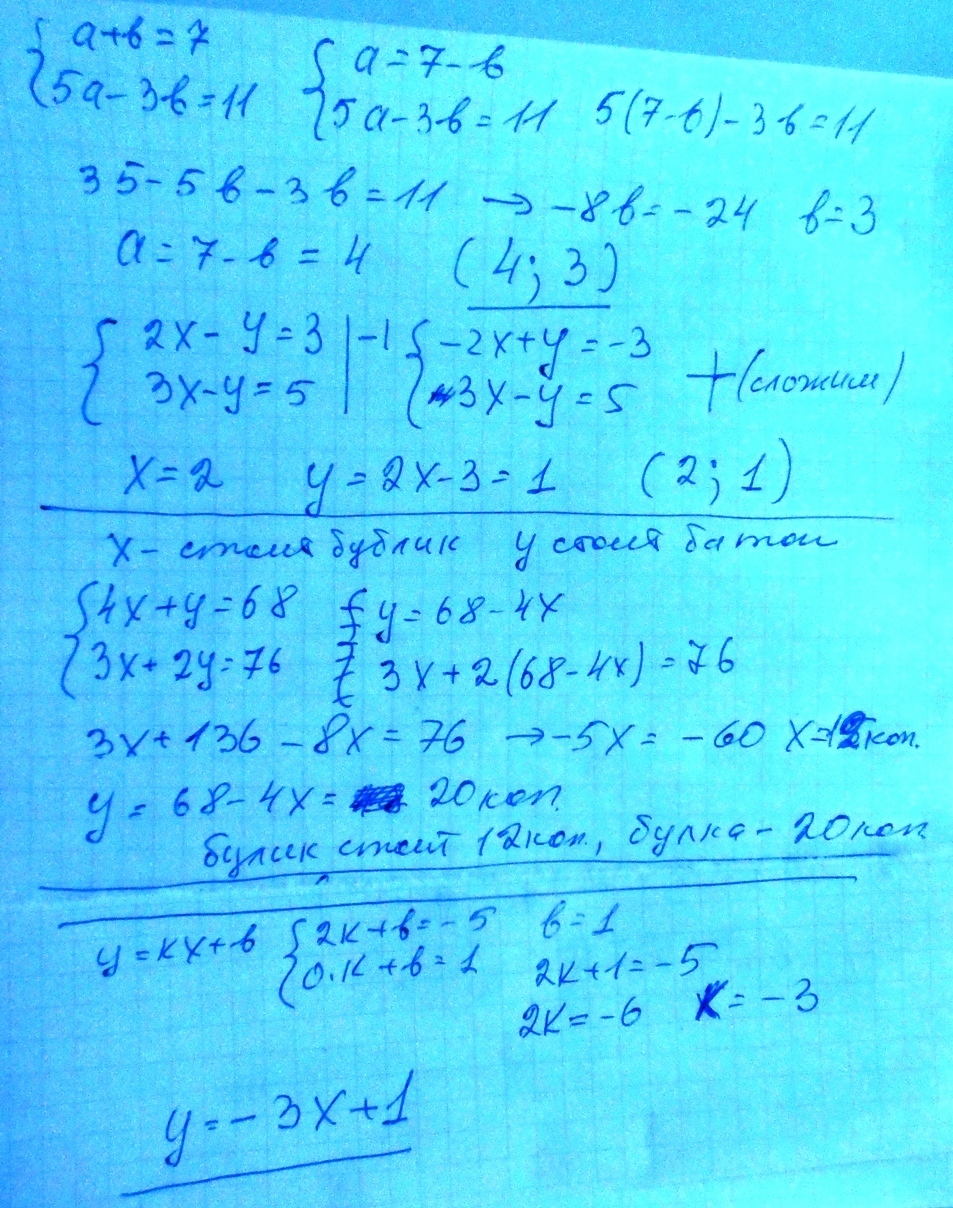 a+b=7
5a-3b=11
a=7-b
5a-3b=11 5(7-b)-3b=11
35-5b-3b=11 → -8b=-24 b=3
a=7-b=4 (4; 3)
2x-y=3 |-1 -2x+y=-3
3x-y=5 | 3x-y=5 + (сложим)
x=2 y=2x-3=1 (2; 1)
x- стоит бублик y стоит батон
4x+y=68 y=68-4x
3x+2y=76 3x+2(68-4x)=76
3x+136-8x=76 → -5x=-60 x=12коп.
y=68-4x= 20коп.
булик стоит 12коп., булка - 20коп
y=kx+b 2k+b=-5 b=1
0·k+b=1 2k+1=-5
2k=-6 k=-3
y=-3x+1